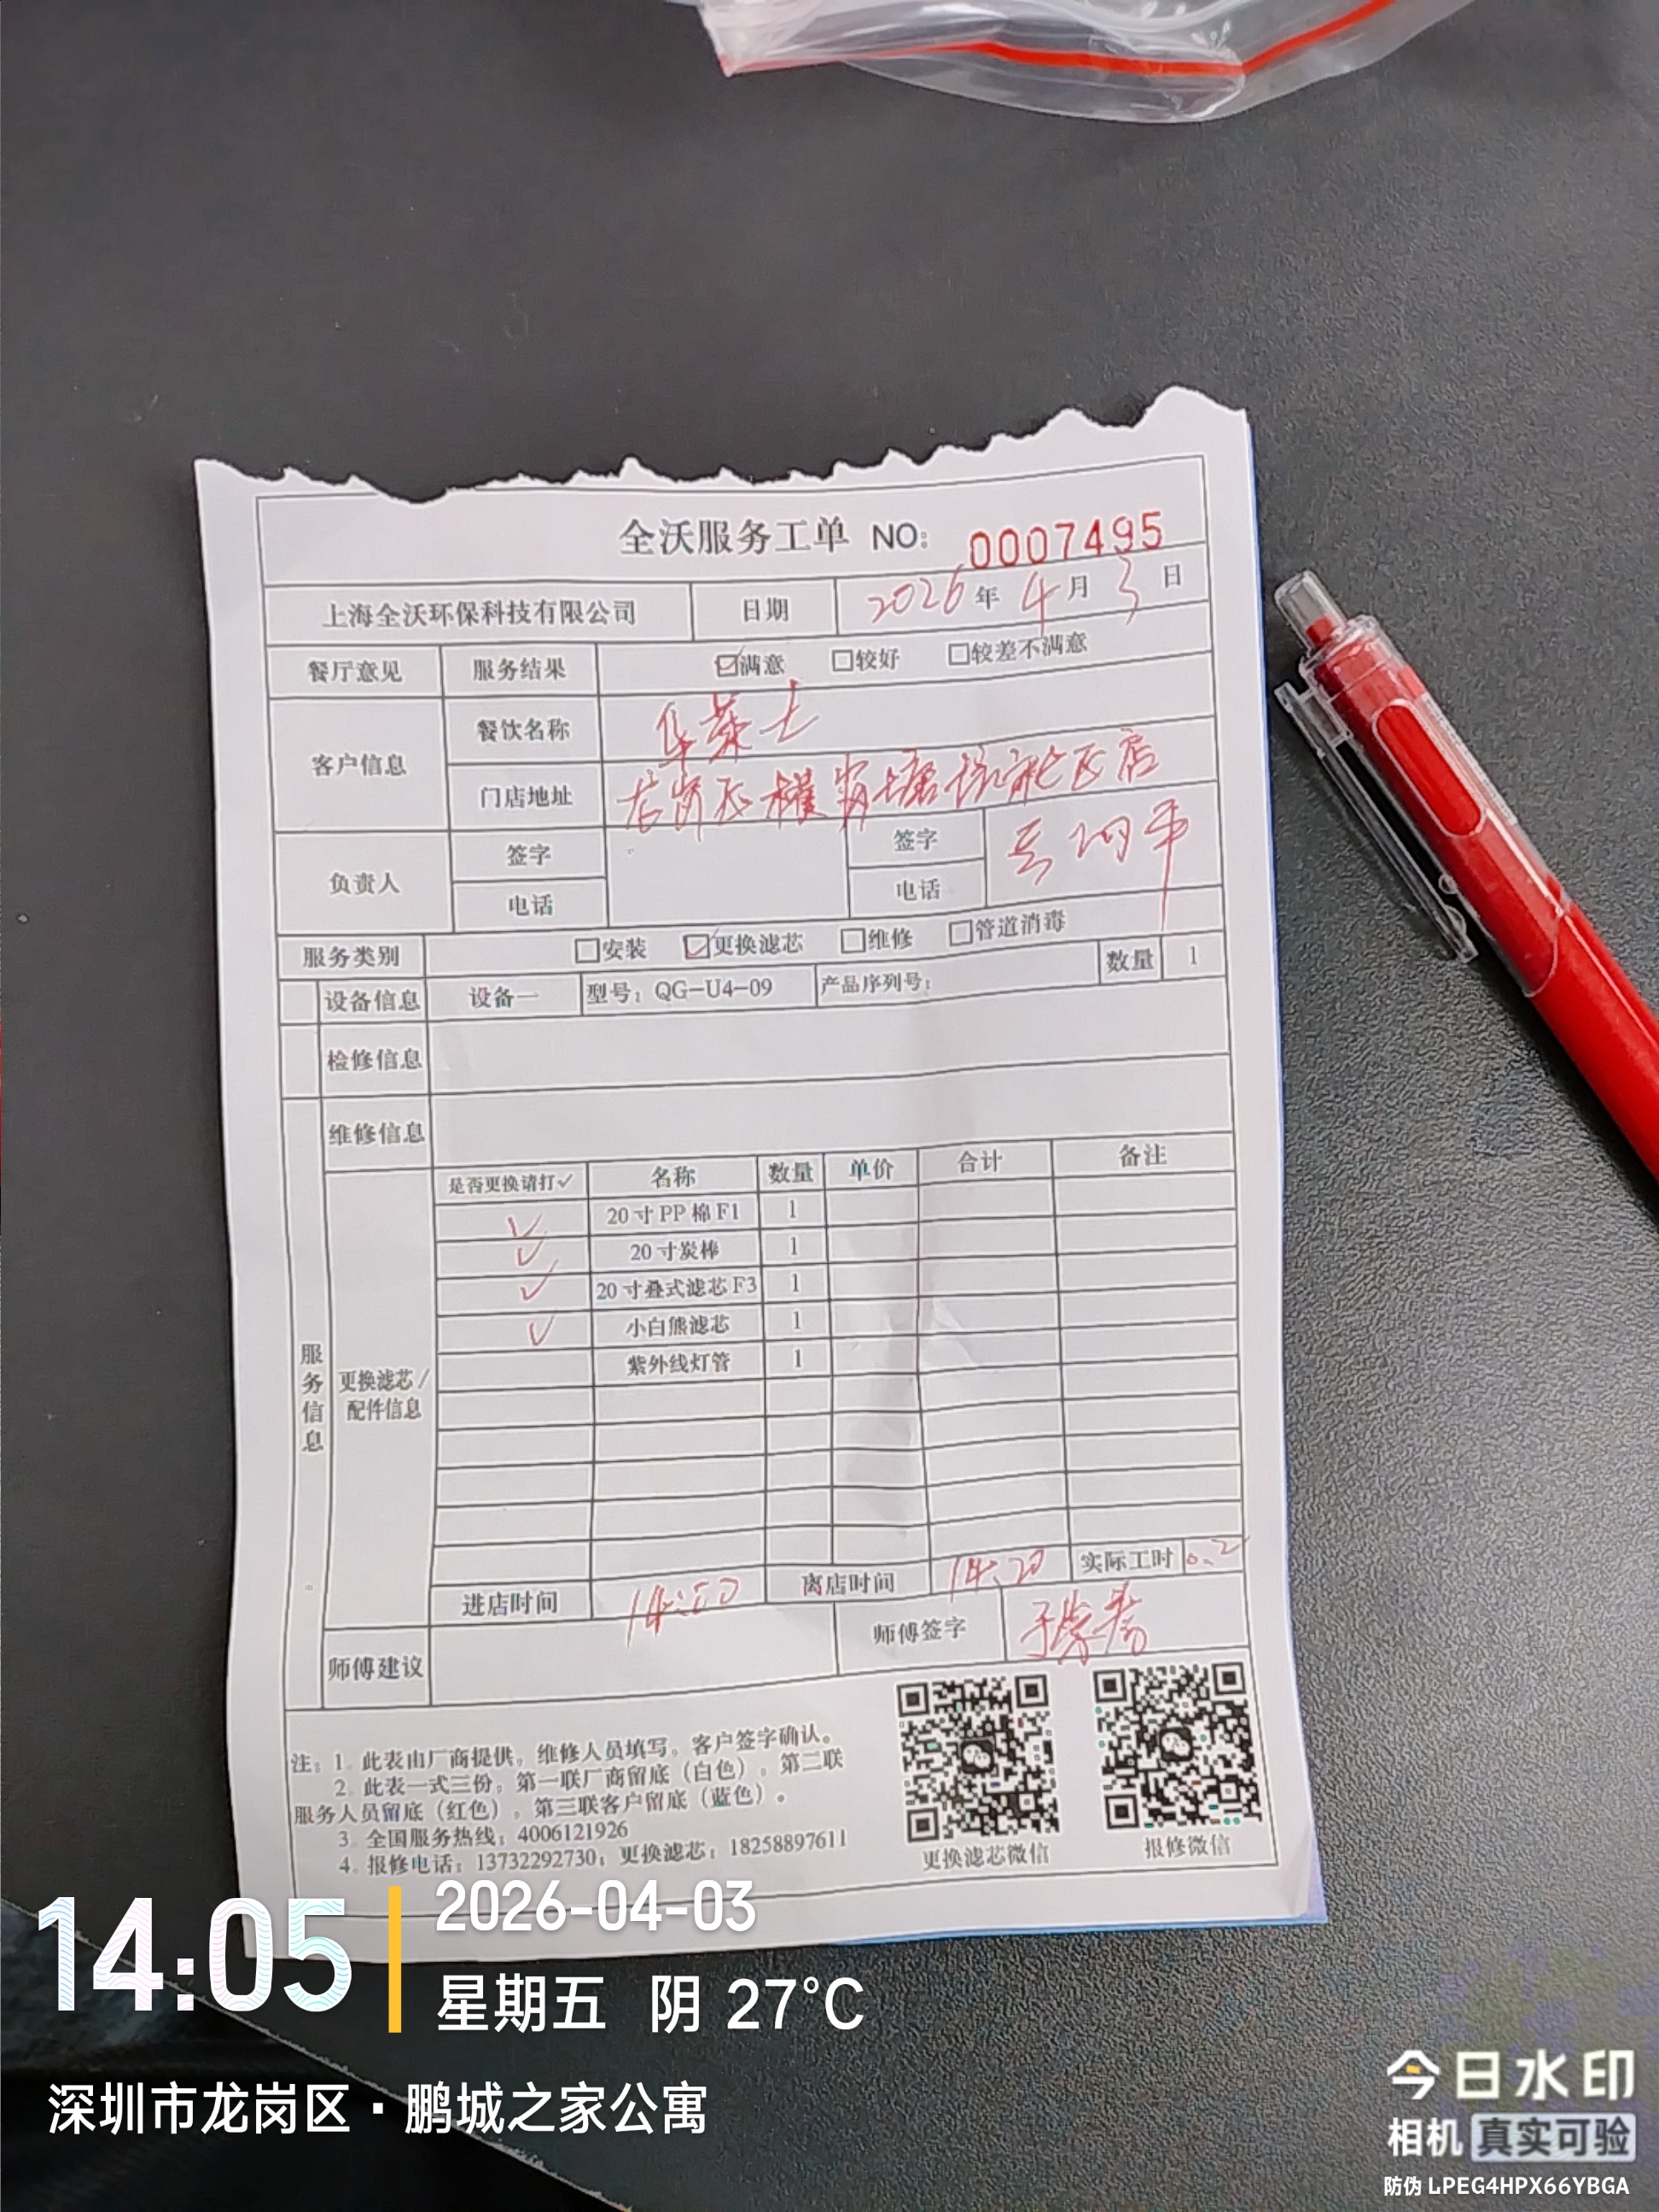 全沃服务工单 NO: 0007495
上海全沃环保科技有限公司 日期 2026年4月3日
餐厅意见 服务结果 ☑满意 □较好 □较差不满意
客户信息 餐饮名称 华莱士
门店地址 塘坑社区店
负责人 签字 签字
电话 电话
服务类别 □安装 ☑更换滤芯 □维修 □管道消毒
设备信息 设备一 型号：QG-U4-09 产品序列号： 数量 1
检修信息
维修信息
服务信息
更换滤芯/配件信息
是否更换请打✓ 名称 数量 单价 合计 备注
✓ 20寸PP棉F1 1
✓ 20寸炭棒 1
✓ 20寸叠式滤芯F3 1
✓ 小白熊滤芯 1
紫外线灯管 1
进店时间 14:00 离店时间 14:20 实际工时 0.2
师傅建议 师傅签字
注：1。此表由厂商提供，维修人员填写，客户签字确认。
2。此表一式三份，第一联厂商留底（白色），第二联
服务人员留底（红色），第三联客户留底（蓝色）。
3。全国服务热线：4006121926
4。报修电话：13732292730；更换滤芯：18258897611
更换滤芯微信 报修微信
14:05
2026-04-03
星期五 阴 27°C
深圳市龙岗区·鹏城之家公寓
今日水印
相机 真实可验
防伪 LPEG4HPX66YBGA